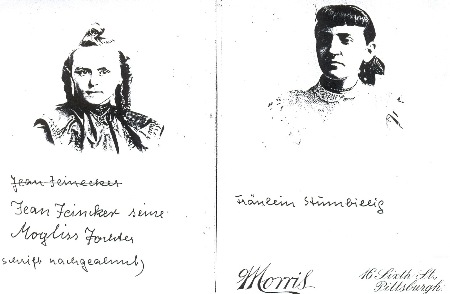 Jean Jeinecker
Jean Jeincker seine
Mogliss Tochter
Schrift nachgeahmt)
Fränlein Stumbillig
Morris
16 Sixth St.,
Pittsburgh.